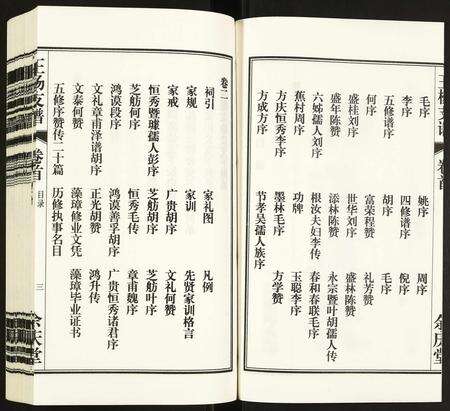 毛序 姚序 周序
李序 四修谱序 倪序
五修谱序 胡序 毛序
何序 富荣程赞 礼芳赞
盛桂刘序 世华刘序 盛林陈赞
盛年陈赞 添林陈赞 永宗暨叶胡孺人传
六姊孺人刘序 根汝夫妇李传 春和春联毛序
蕉村周序 功牌 玉聪李序
方庆恒秀李序 墨林毛序 方学赞
方成方序 节孝吴孺人族序
卷二
祠引 家礼图 凡例
家规 家训 先贤家训格言
家戒 广贵胡序 文礼何赞
恒秀暨璩孺人彭序 芝舫胡序 芝舫叶序
芝舫何序 恒秀毛传 章甫魏序
鸿谟段序 鸿谟善孚胡序 广贵恒秀诸君序
文礼章甫泽谱胡序 正光胡赞 鸿升传
文泰何赞 藻璋修业文凭 藻璋毕业证书
五修序赞传二十篇 历修执事名目
卷首 目录 三 余庆堂